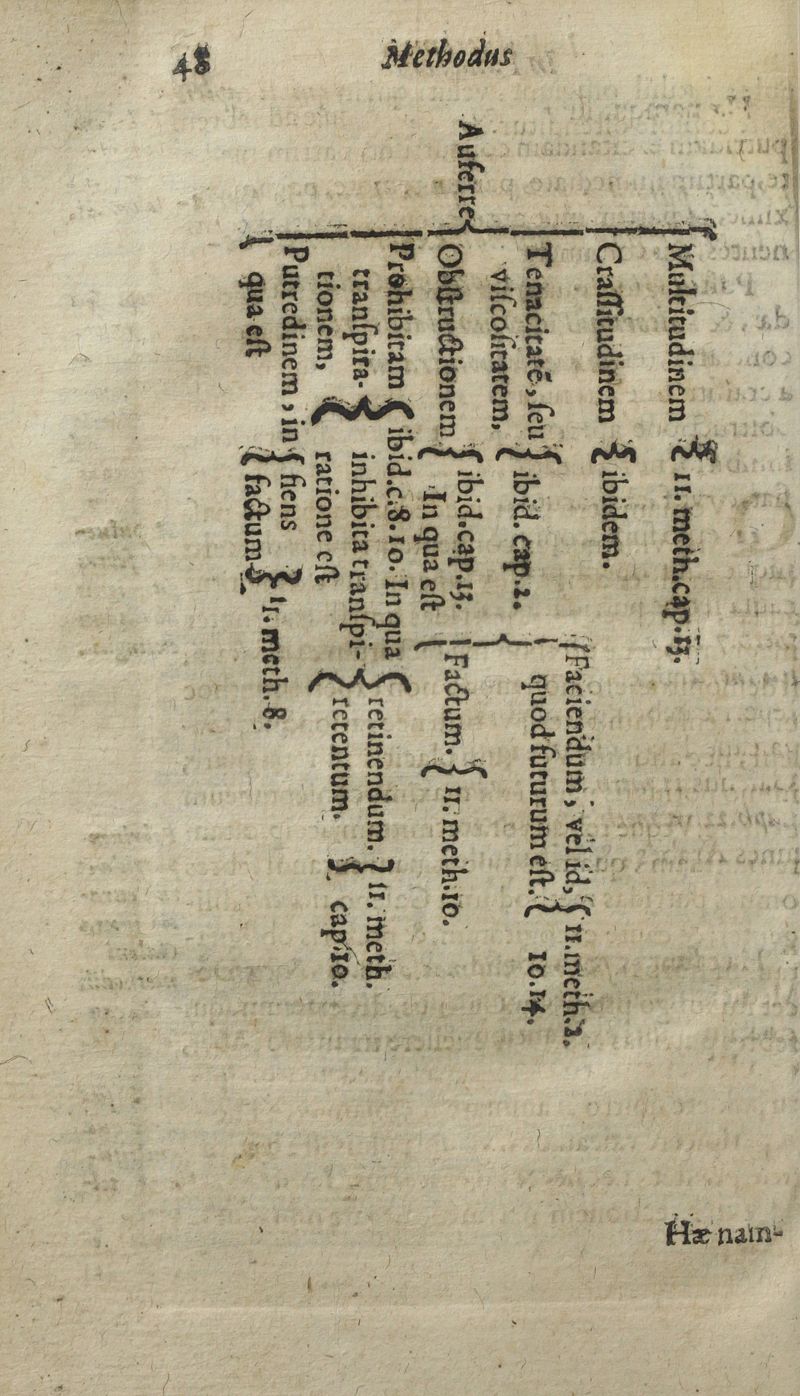 48
Methodus
Auferre
Multitudinem
11. meth.cap.15.
Crassitudinem
ibidem.
Tenacitatē, seu
viscositatem,
ibid. cap.2.
Obstructionem
ibid.cap.15.
In qua est
Faciendum, vel id,
quod futurum est.
11.meth.2.
10.14.
Factum.
11. meth.10.
Prohibitam
transpira-
tionem,
ibid.c.8.10. In qua
inhibita transpi-
ratione est
retinendum.
retentum.
11. meth.
cap.10.
Putredinem, in
qua est
fiens
factum
11. meth. 8.
Hæ nam-